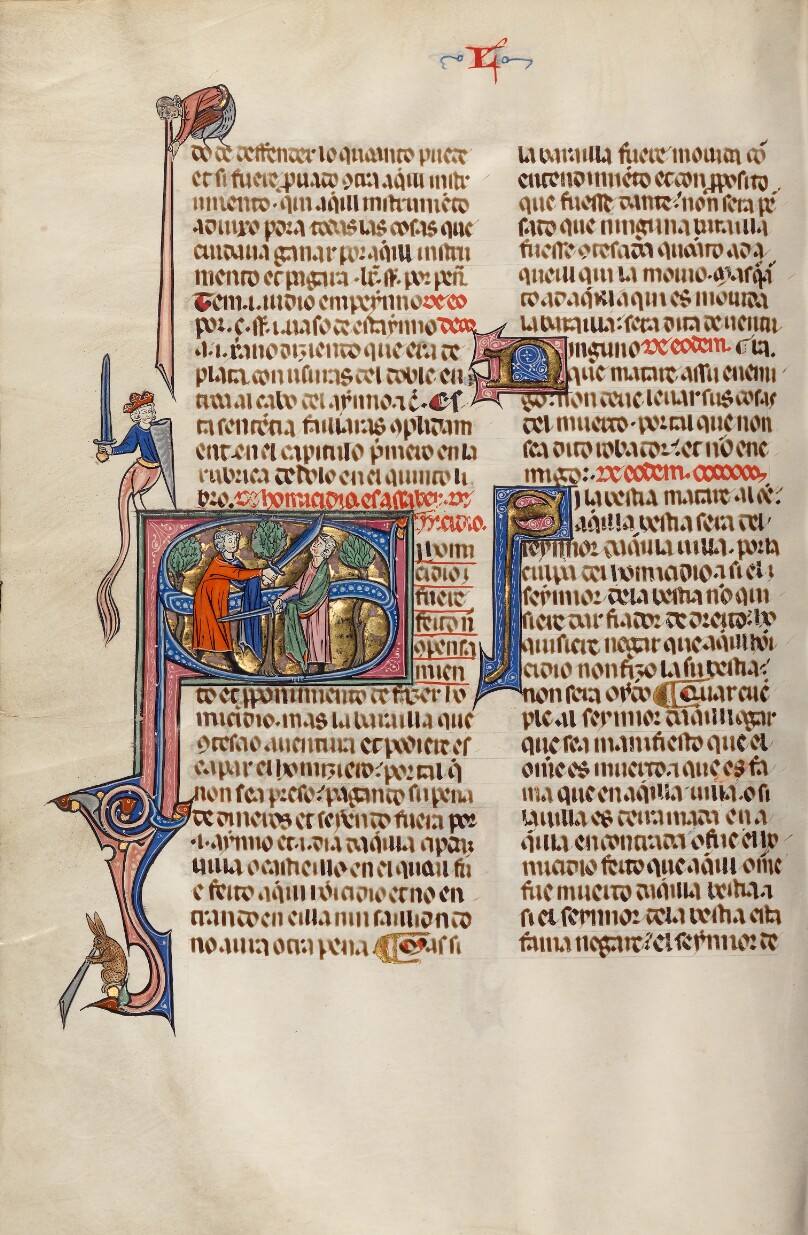 L
do de deffender lo quanto puede
et si fuere puado 9tra aqill instr
mento. qui aqill instrumẽto
aduxo pora todas las cosas que
cuidaua ganar por aqill instru
mento et pagara
Item .i. iudio empeynno de eo
por .c. ss. i. uaso de estaynno dem
a .i. xp̃ano diziento que era de
plata con usuras del doble en
trada al cabo del aynno a .c̃. Es
ta sentẽcia faillaras aplidam
ent en el capitulo p̃mero en la
rubrica de dolo en el quinto li
bro. De homicidio es assaber de
homicidio.
Si homi
cidio
fuere
feito n̄
opensa
mien
to et ꝓponimiento de fazer ho
micidio. mas la barailla que
9tesao auentura et podiere es
capar el homiziero: por tal q̄
non sea preso: pagando su pena
de dineros et seyendo fuera por
.i. aynno et .i. dia daqilla cipdat
uilla o castieillo en el quall fu
e feito aquil hoicidio et no en
trando en eilla nin saillondo
no aura otra pena ¶ Mas si
la barailla fuere mouida cō
entendimiẽto et con ꝓposito
que fuesse dante: non sera pē
sado que ninguna barailla
fuesse 9tesada quãto ad a
queill qui la mouio. Mas qã
to ad aqill a qui es mouida
la baraillla: sera dita de uentu
Ninguno De eodem. ra.
que matare assu enemi
go: non deue leuar sus cosas
del muerto. por tal que non
sea dito robador: et nō ene
migo: De eodem.
Si la bestia matare al oē:
aqilla bestia sera del
seynnor daqilla uilla. por la
culpa del homicidio. a si el
seynnor dela bestia no qui
siere dar fiador de dreito: ho
quisiere negar que aqill hoi
cidio non fizo la su bestia:
non sera oydo ¶ Quar cue
ple al seynnor daqill logar
que sea manifiesto que el
om̄e es muerto. a que es fa
ma que en aqilla uilla. o si
la uilla es derramada en a
qilla encontrada o fue el ho
micidio feito que aqill om̄e
fue muerto daqilla bestia. a
si el seynnor dela bestia esta
fama negare: el seynnor de